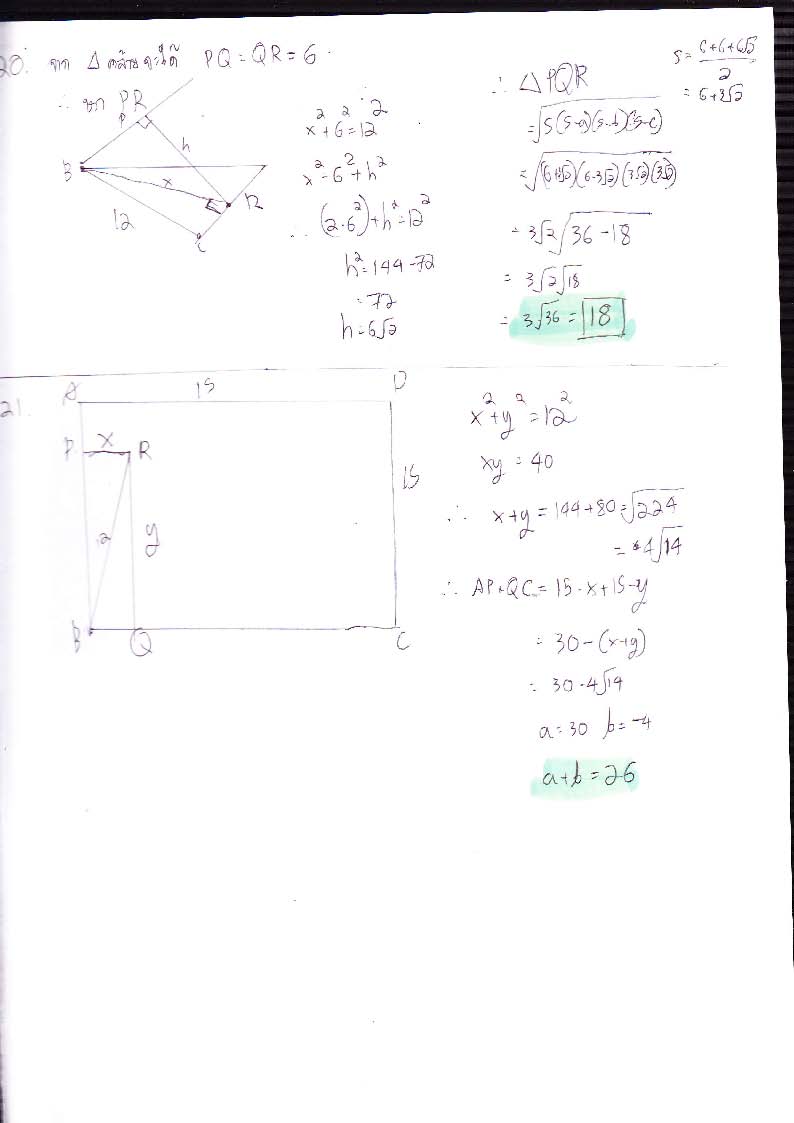 20. จาก Δ คล้ายจะได้ PQ = QR = 6
∴ หา PR
P
h
B
x
R
12
C
x² + 6² = 12²
x² = 6² + h²
∴ (2·6²) + h² = 12²
h² = 144 - 72
= 72
h = 6√2
∴ Δ PQR
= √S(S-a)(S-b)(S-c)
= √(6+3√2)(6-3√2)(3√2)(3√2)
= 3√2 √36 - 18
= 3√2 √18
= 3√36 = 18
S = 6+6+6√2
2
= 6+3√2
21.
A 15 D
P x R
15
12
y
B Q C
x² + y² = 12²
xy = 40
∴ x+y = 144+80 = √224
= 4√14
∴ AP+QC = 15-x+15-y
= 30-(x+y)
= 30-4√14
a = 30 b = -4
a+b = 26